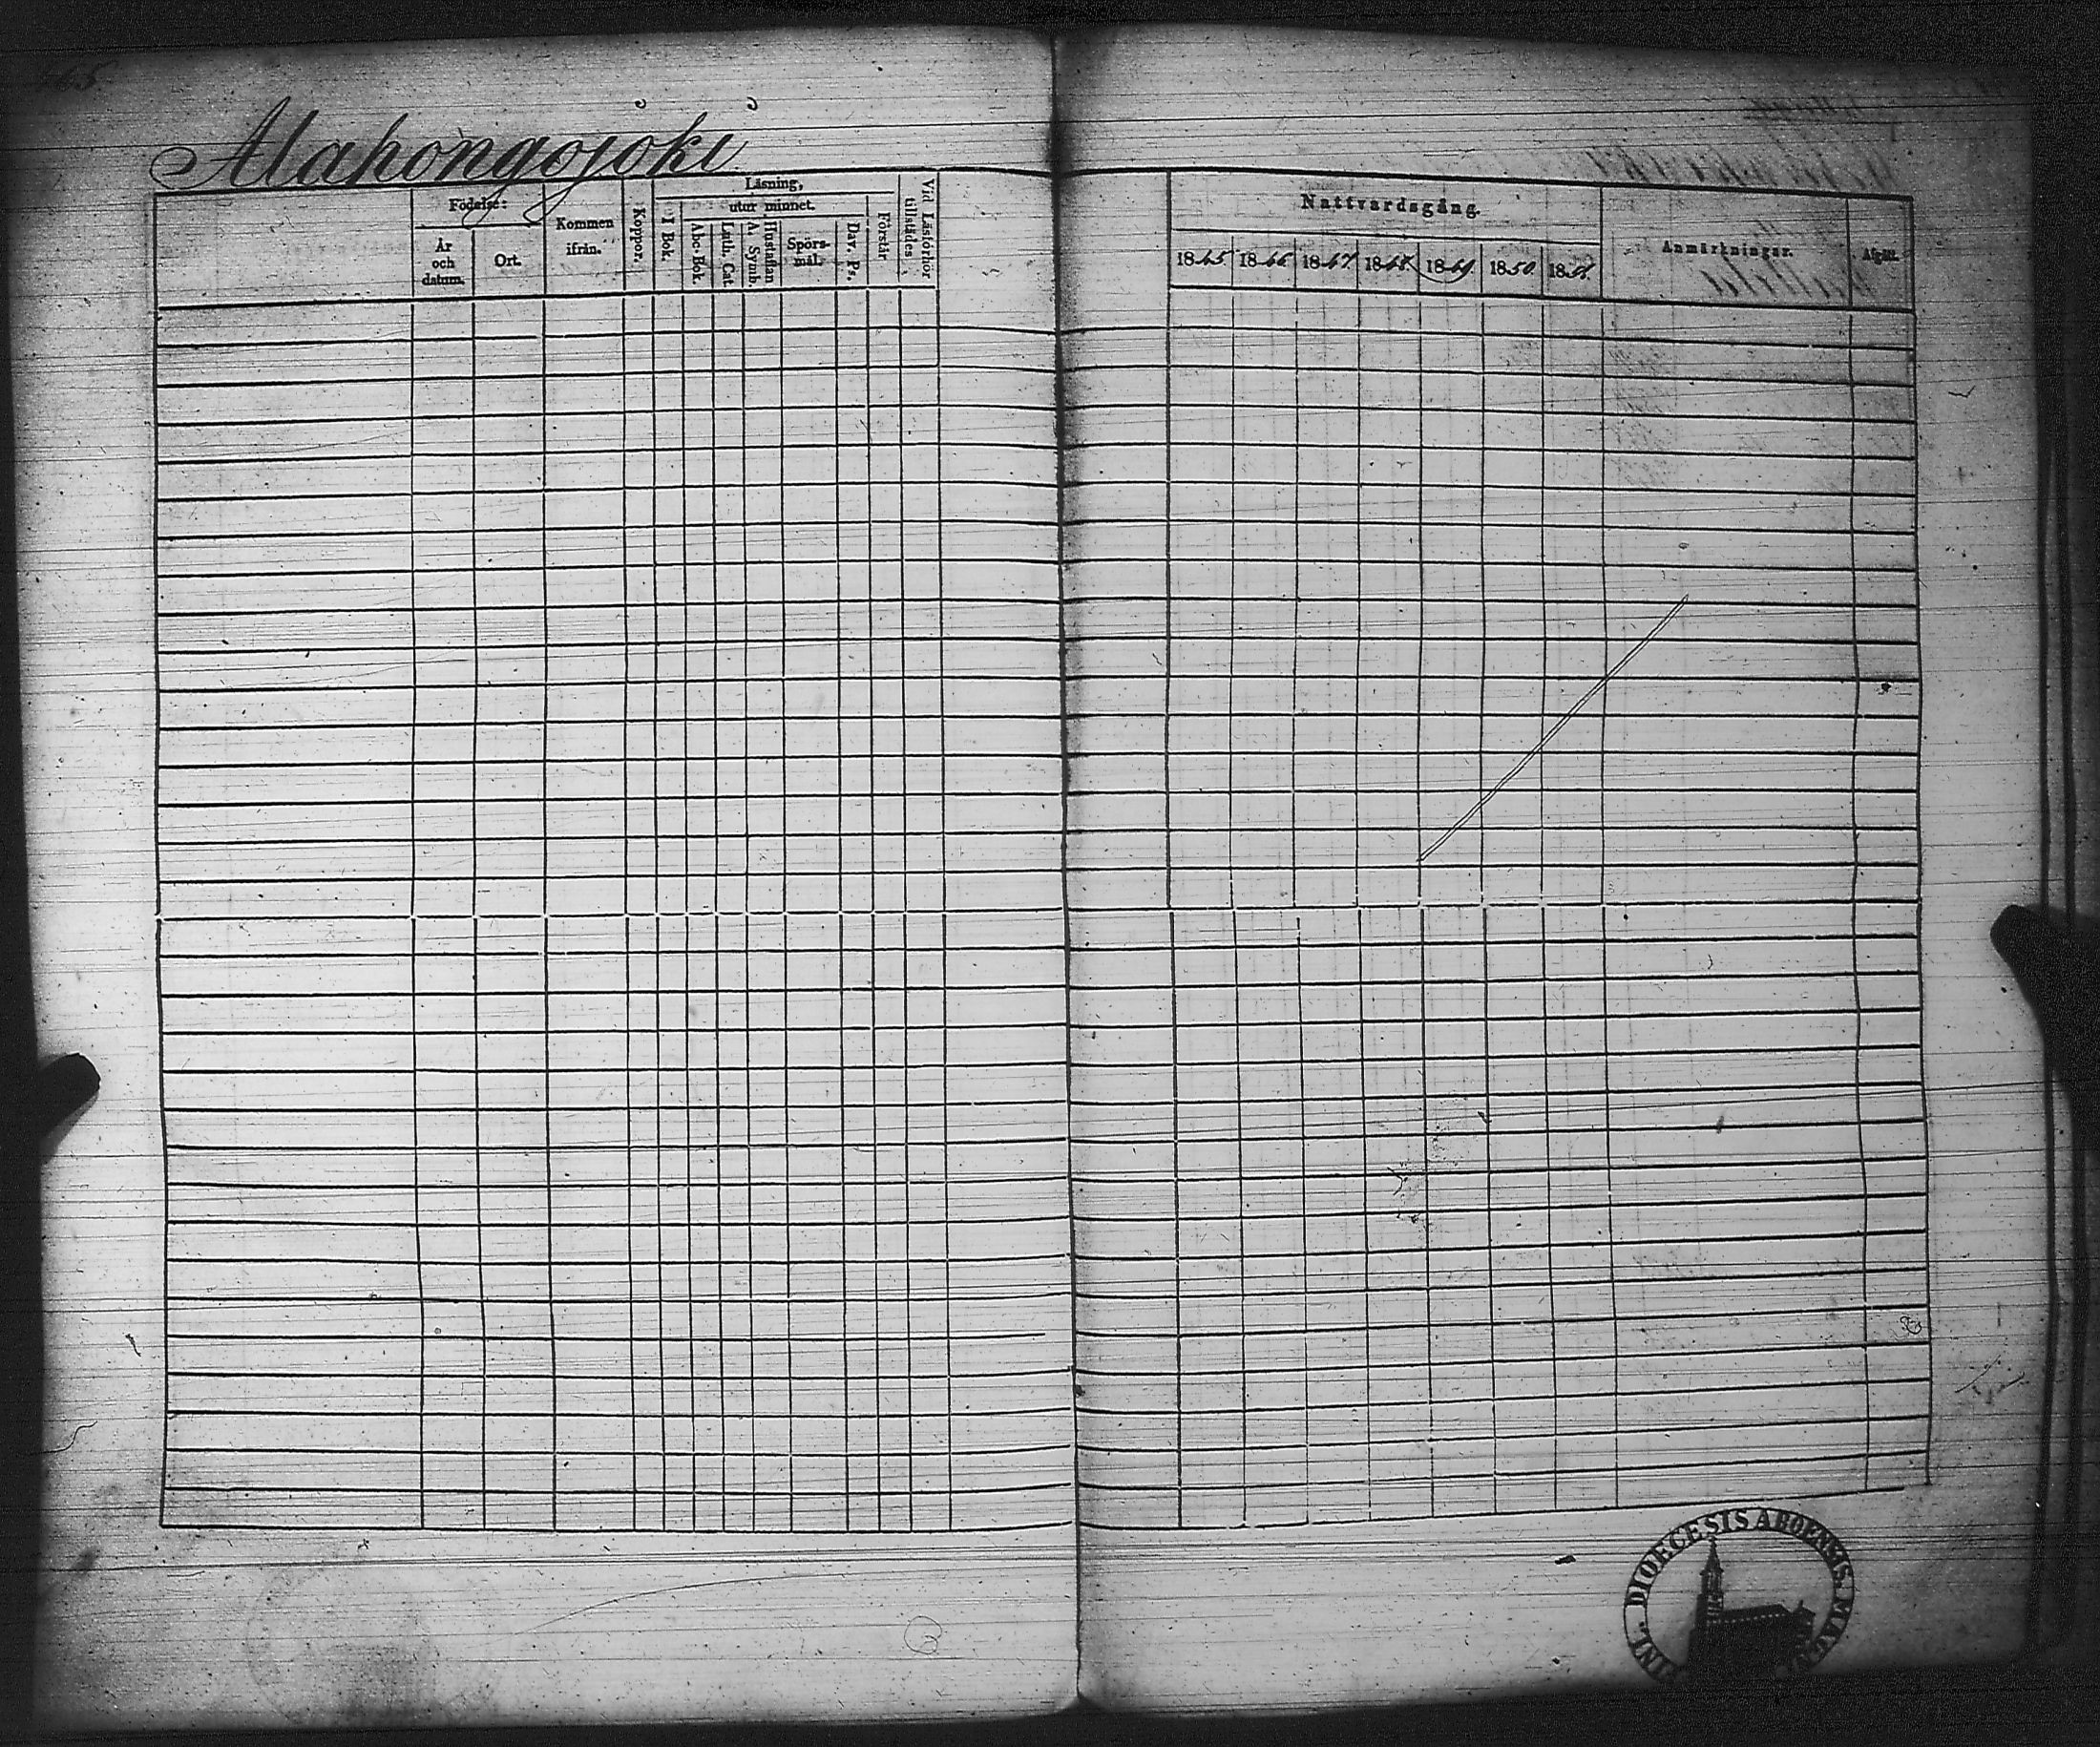 465
Alahongojoki
Födelse:
År och datum.
Ort.
Kommen ifrån.
Koppor.
Läsning,
I Bok.
utur minnet.
Abc-Bok.
Luth. Cat.
Hustaflan A. Symb.
Spörsmål.
Dav. Ps.
Förstår
Vid Läsförhör tillstädes.
Nattvardsgång.
1845. 1846 1847 1848. 1849. 1850. 1851.
Anmärkningar.
Afgått.
DIOECESIS ABOENSIS. MAGNI